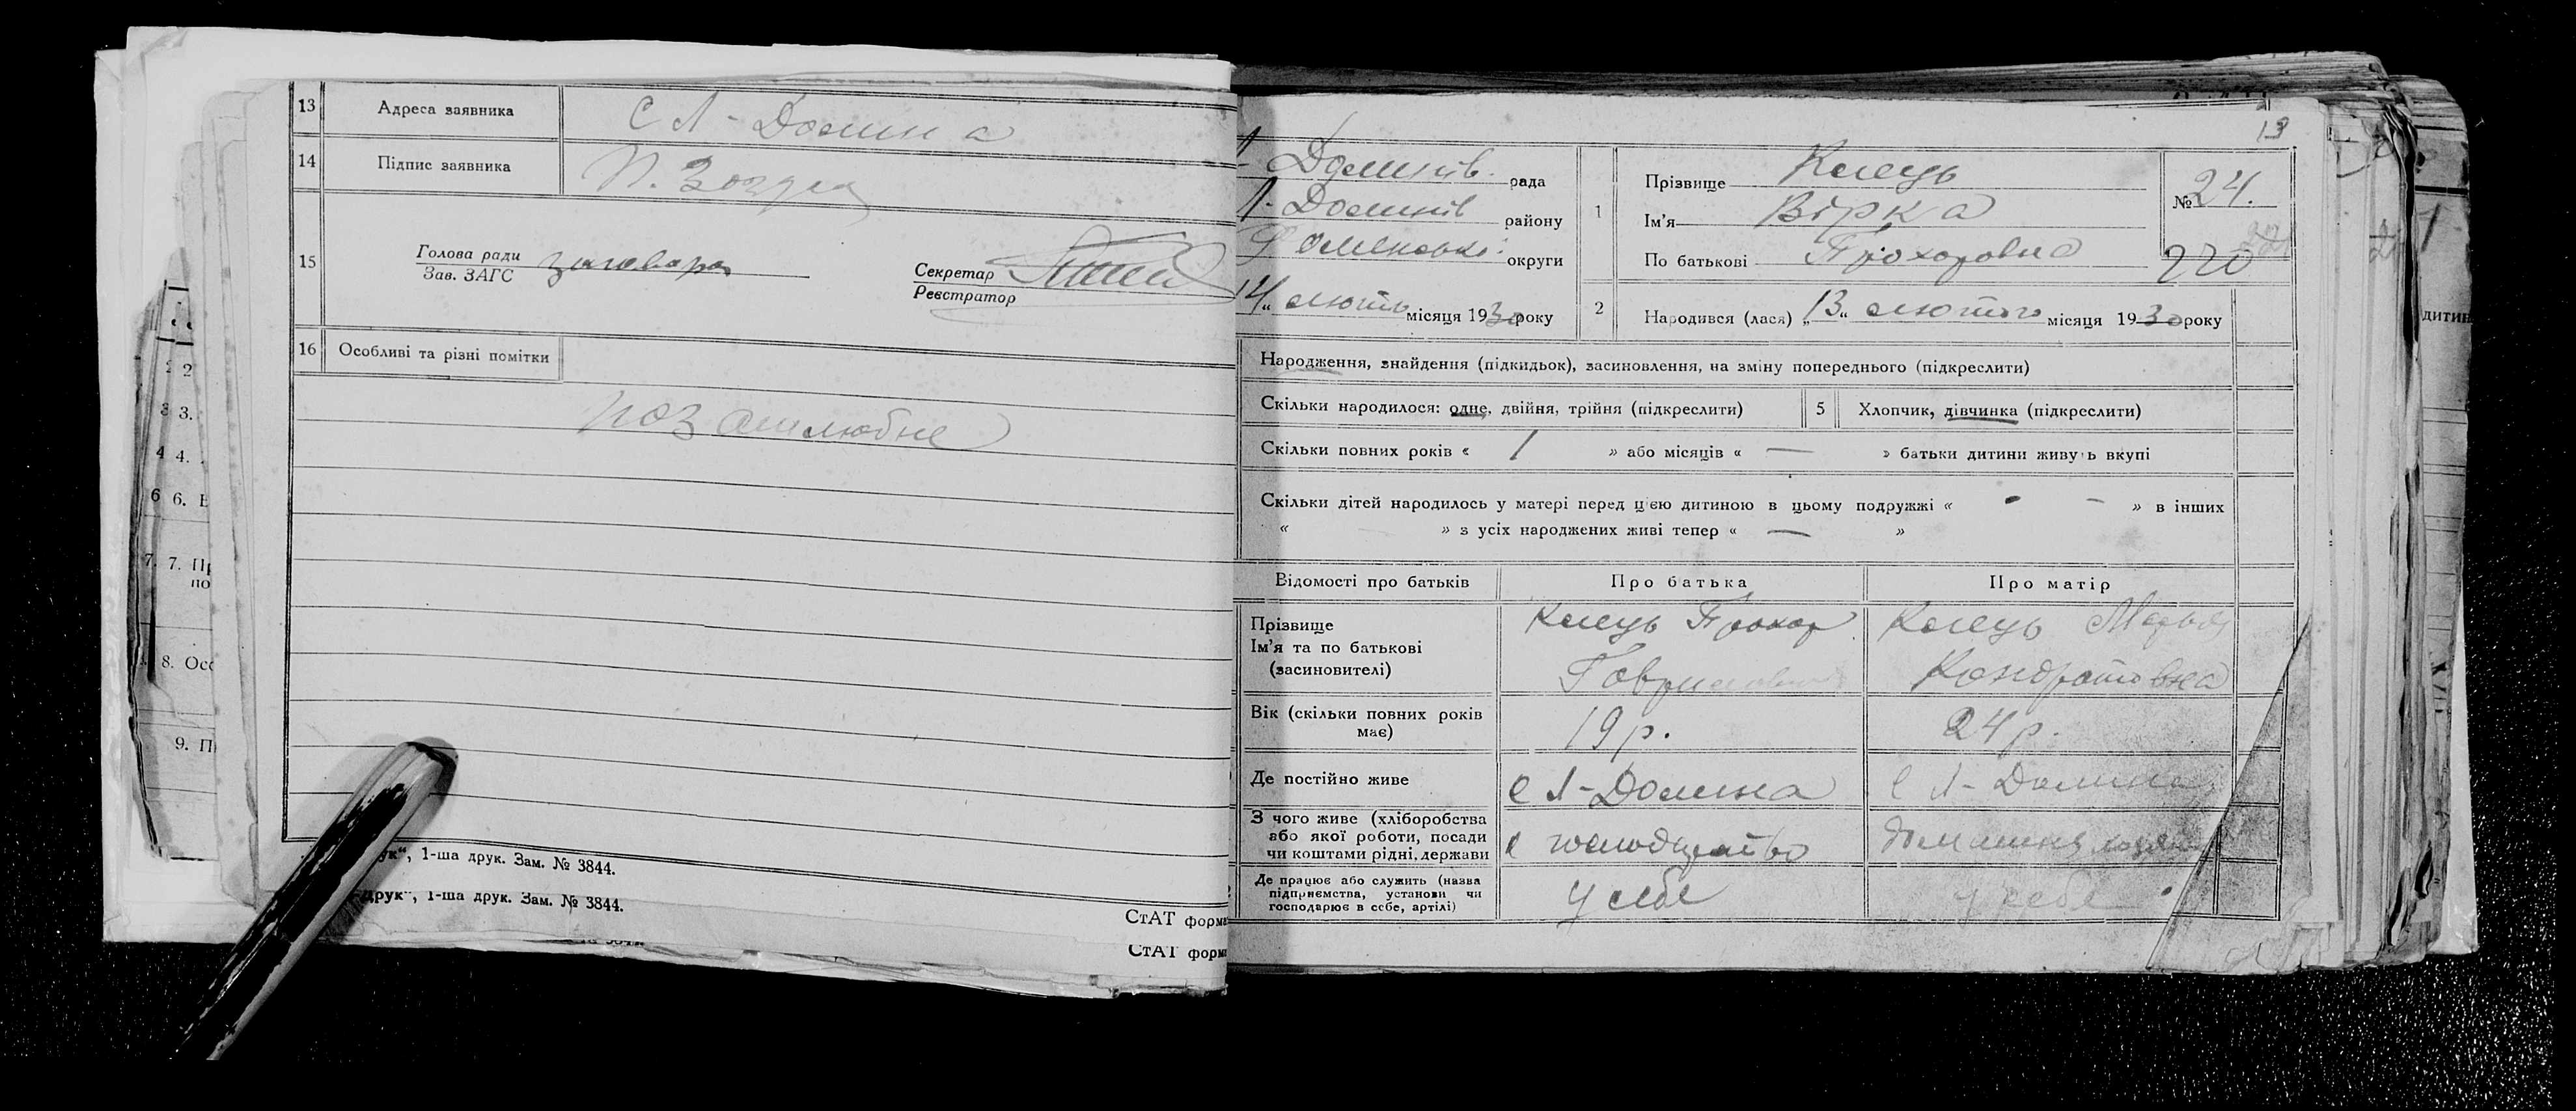 13 Адреса заявника С Л-Долина
14 Підпис заявника П.
15 Голова ради
Зав. ЗАГС
Секретар
Реєстратор
16 Особливі та різні помітки
поз
ук", 1-ша друк. Зам. № 3844.
-друк", 1-ша друк. Зам. № 3844.
СтАТ форма
СтАТ форм
2 2
3 3.
4 4.
6 6. В
7. 7. Пр
по
8. Осо
9. П
13
Л-Долинів. рада
Л-Долинів району
Роменської округи
14 " лютого місяця 1930 року
1 Прізвище
Ім'я Вірка
По батькові Прохоровна
№ 24.
220
2 Народився (лася) „13" лютого місяця 1930 року
Народження, знайдення (підкидьок), засиновлення, на зміну попереднього (підкреслити)
Скільки народилося: одне, двійня, трійня (підкреслити) 5 Хлопчик, дівчинка (підкреслити)
Скільки повних років « 1 » або місяців « — » батьки дитини живуть вкупі
Скільки дітей народилось у матері перед цією дитиною в цьому подружжі « - - » в інших
« » з усіх народжених живі тепер « — »
Відомості про батьків Про батька Про матір
Прізвище
Ім'я та по батькові
(засиновителі)
Прохор
Марья
Кондратовна
Вік (скільки повних років має) 19 р. 24 р.
Де постійно живе с Л-Долина с Л-Долина
З чого живе (хліборобства
або якої роботи, посади
чи коштами рідні, держави
Де працює або служить (назва
підприємства, установи чи
господарює в себе, артілі)
у себе у себе
дитин